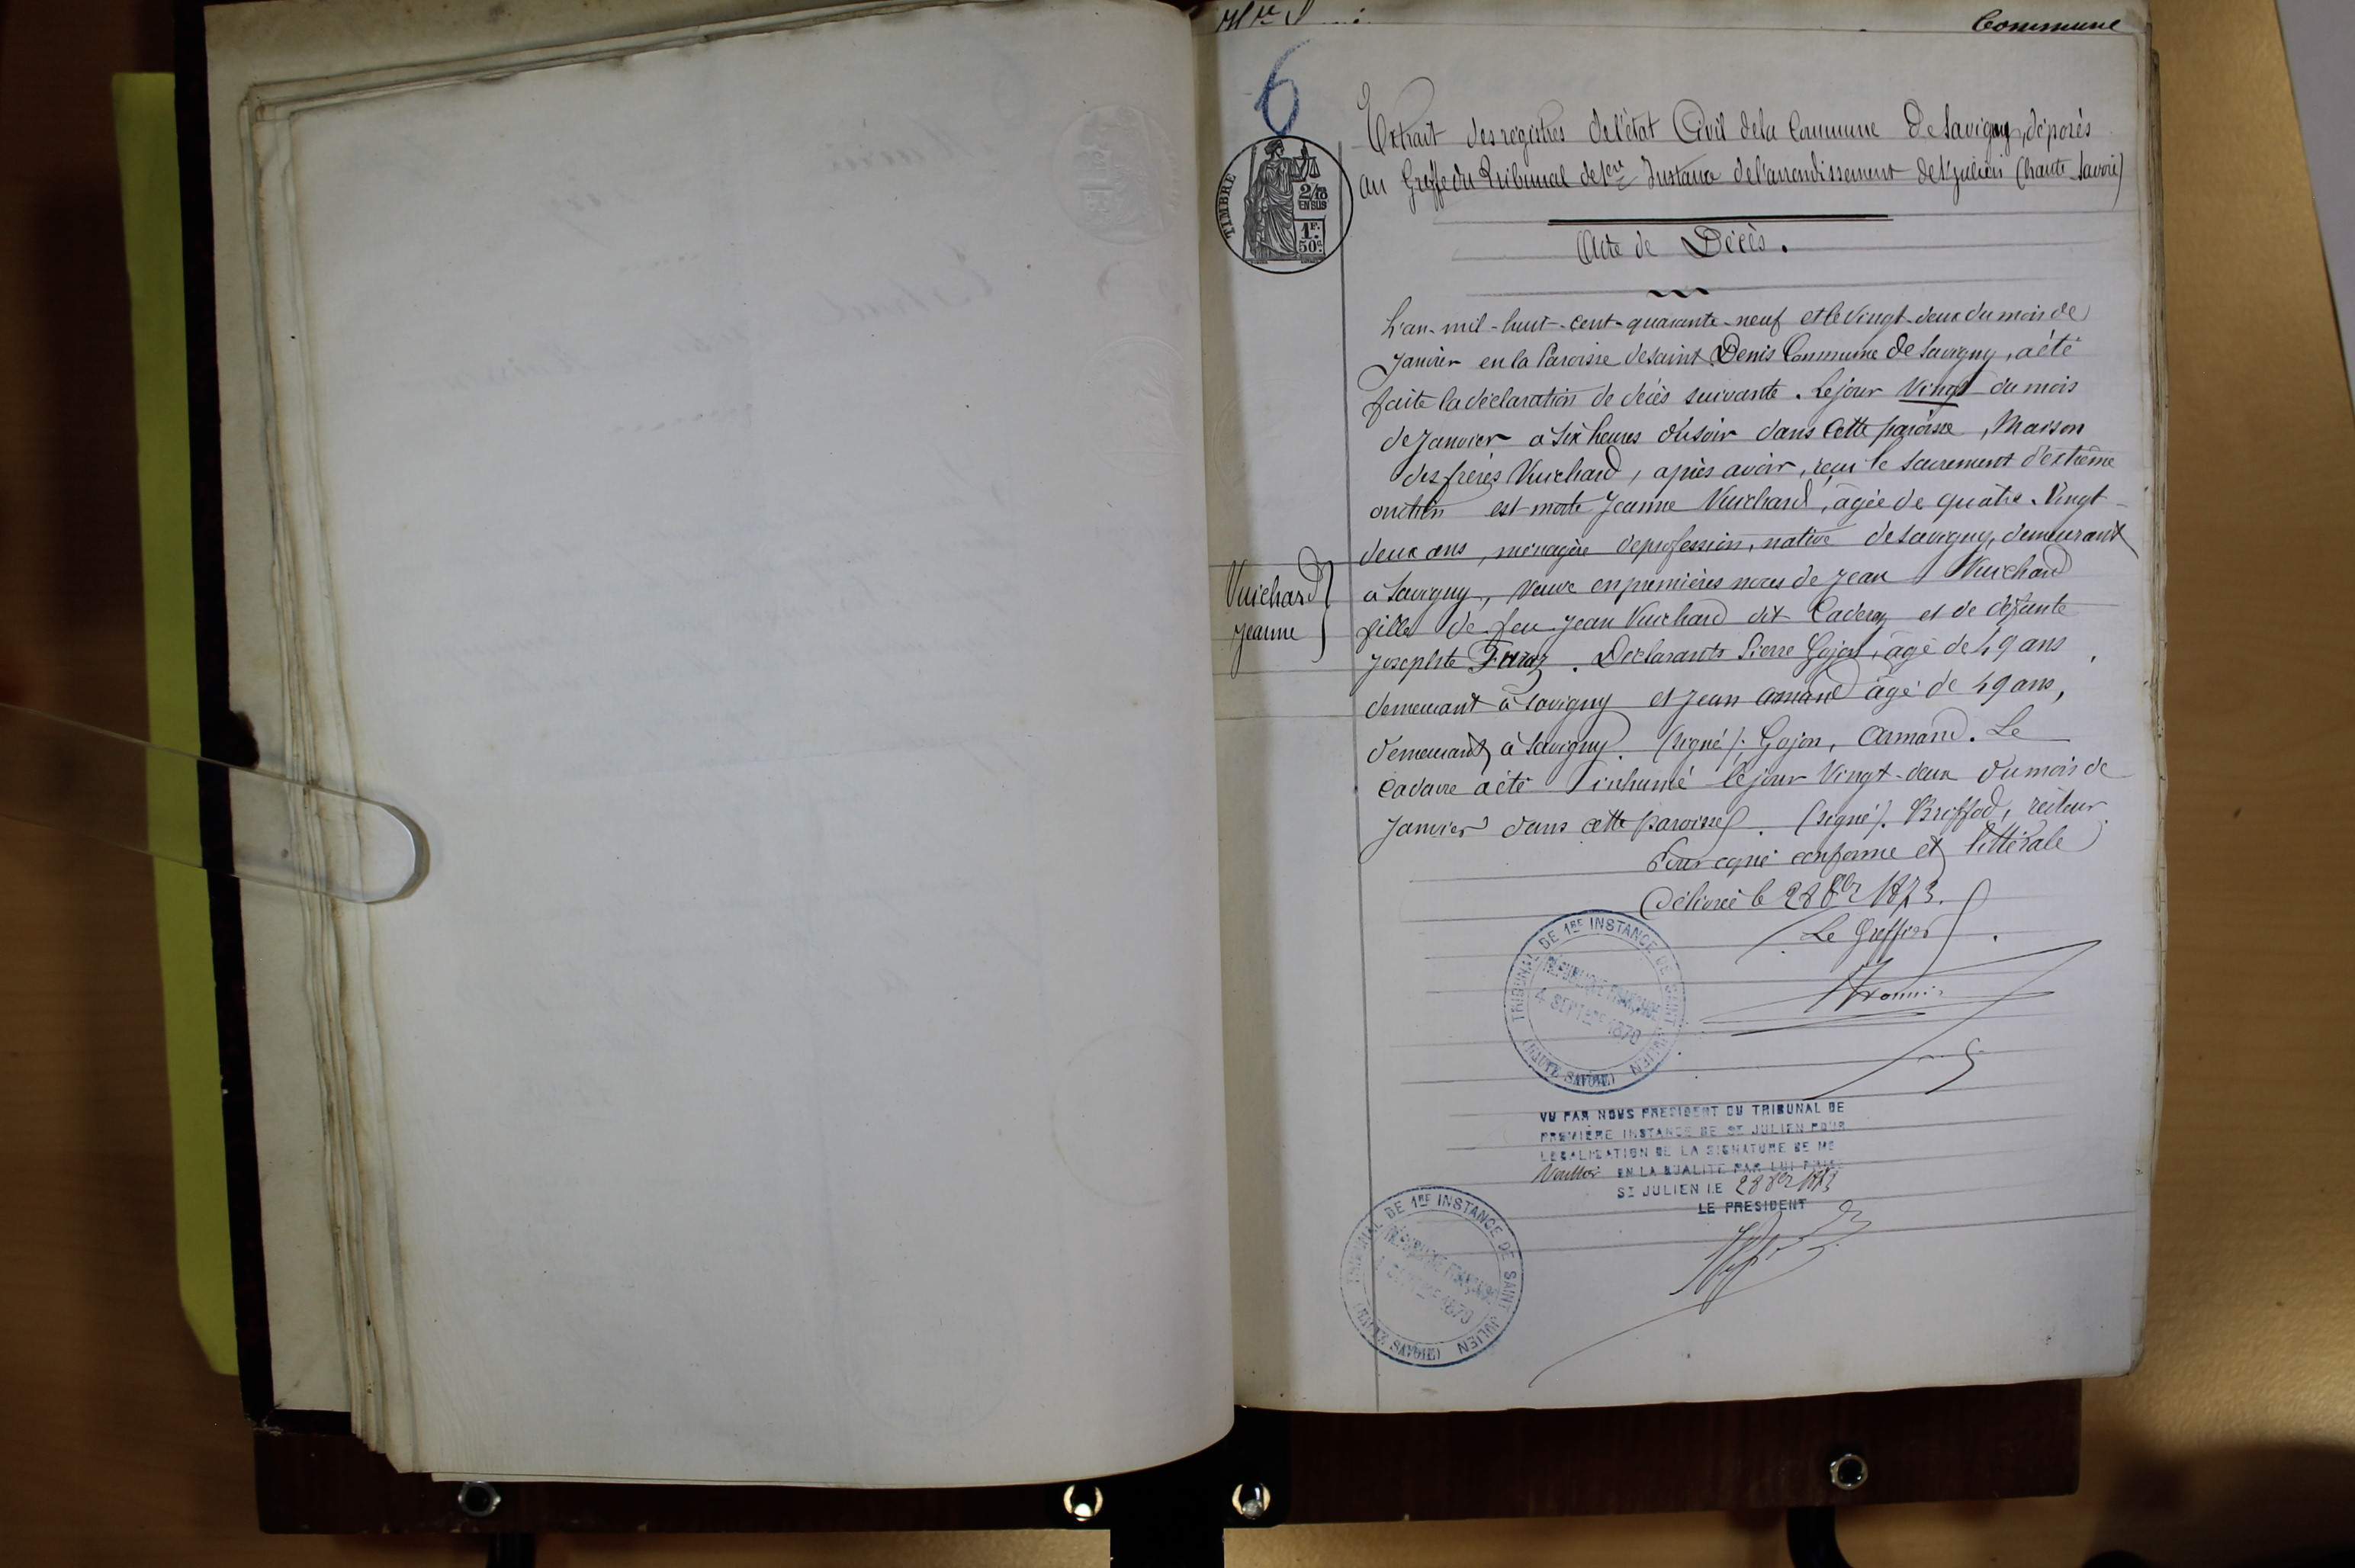 Commune
6
Extrait des registres de l'état Civil de la Commune de Savigny, déposés
au Greffe du Tribunal de 1ère Instance de l'arrondissement de St Julien (haute Savoie)
TIMBRE
2/10
EN SUS
1F.
50c.
Acte de Décès.
L'an mil-huit-cent-quarante-neuf et le vingt-deux du mois de
Janvier en la Paroisse de saint Denis Commune de Savigny, a été
faite la déclaration de décès suivante. Le jour vingt du mois
de Janvier à six heures du soir dans cette paroisse, Maison
des frères Vuichard, après avoir, reçu le sacrement d'extrême
onction est morte Jeanne Vuichard, âgée de quatre-vingt-
deux ans, ménagère de profession, native de Savigny, demeurant
à Savigny, veuve en premières noces de Jean Vuichard
fille de feu Jean Vuichard dit Caderaz et de défunte
Josephte . Déclarants Pierre Gojon, âgé de 49 ans
demeurant à Savigny et Jean Armand âgé de 49 ans,
demeurant à Savigny. (signé): Gojon, Armand. Le
cadavre a été inhumé le jour vingt-deux du mois de
Janvier dans cette paroisse. (signé). Broffod, recteur.
Vuichard
Jeanne
Pour copie conforme et littérale
Délivré le 28 8bre 1873.
Le Greffier
TRIBUNAL DE 1RE INSTANCE DE SAINT JULIEN
RÉPUBLIQUE FRANÇAISE
4 SEPTBRE 1870
(HAUTE SAVOIE)
VU PAR NOUS PRÉSIDENT DU TRIBUNAL DE
PREMIÈRE INSTANCE DE ST JULIEN POUR
LÉGALISATION DE LA SIGNATURE DE ME
EN LA QUALITÉ PAR LUI PRISE
ST JULIEN LE 28 8bre 1873
LE PRÉSIDENT
TRIBUNAL DE 1RE INSTANCE DE SAINT JULIEN
RÉPUBLIQUE FRANÇAISE
4 SEPTBRE 1870
(HAUTE SAVOIE)